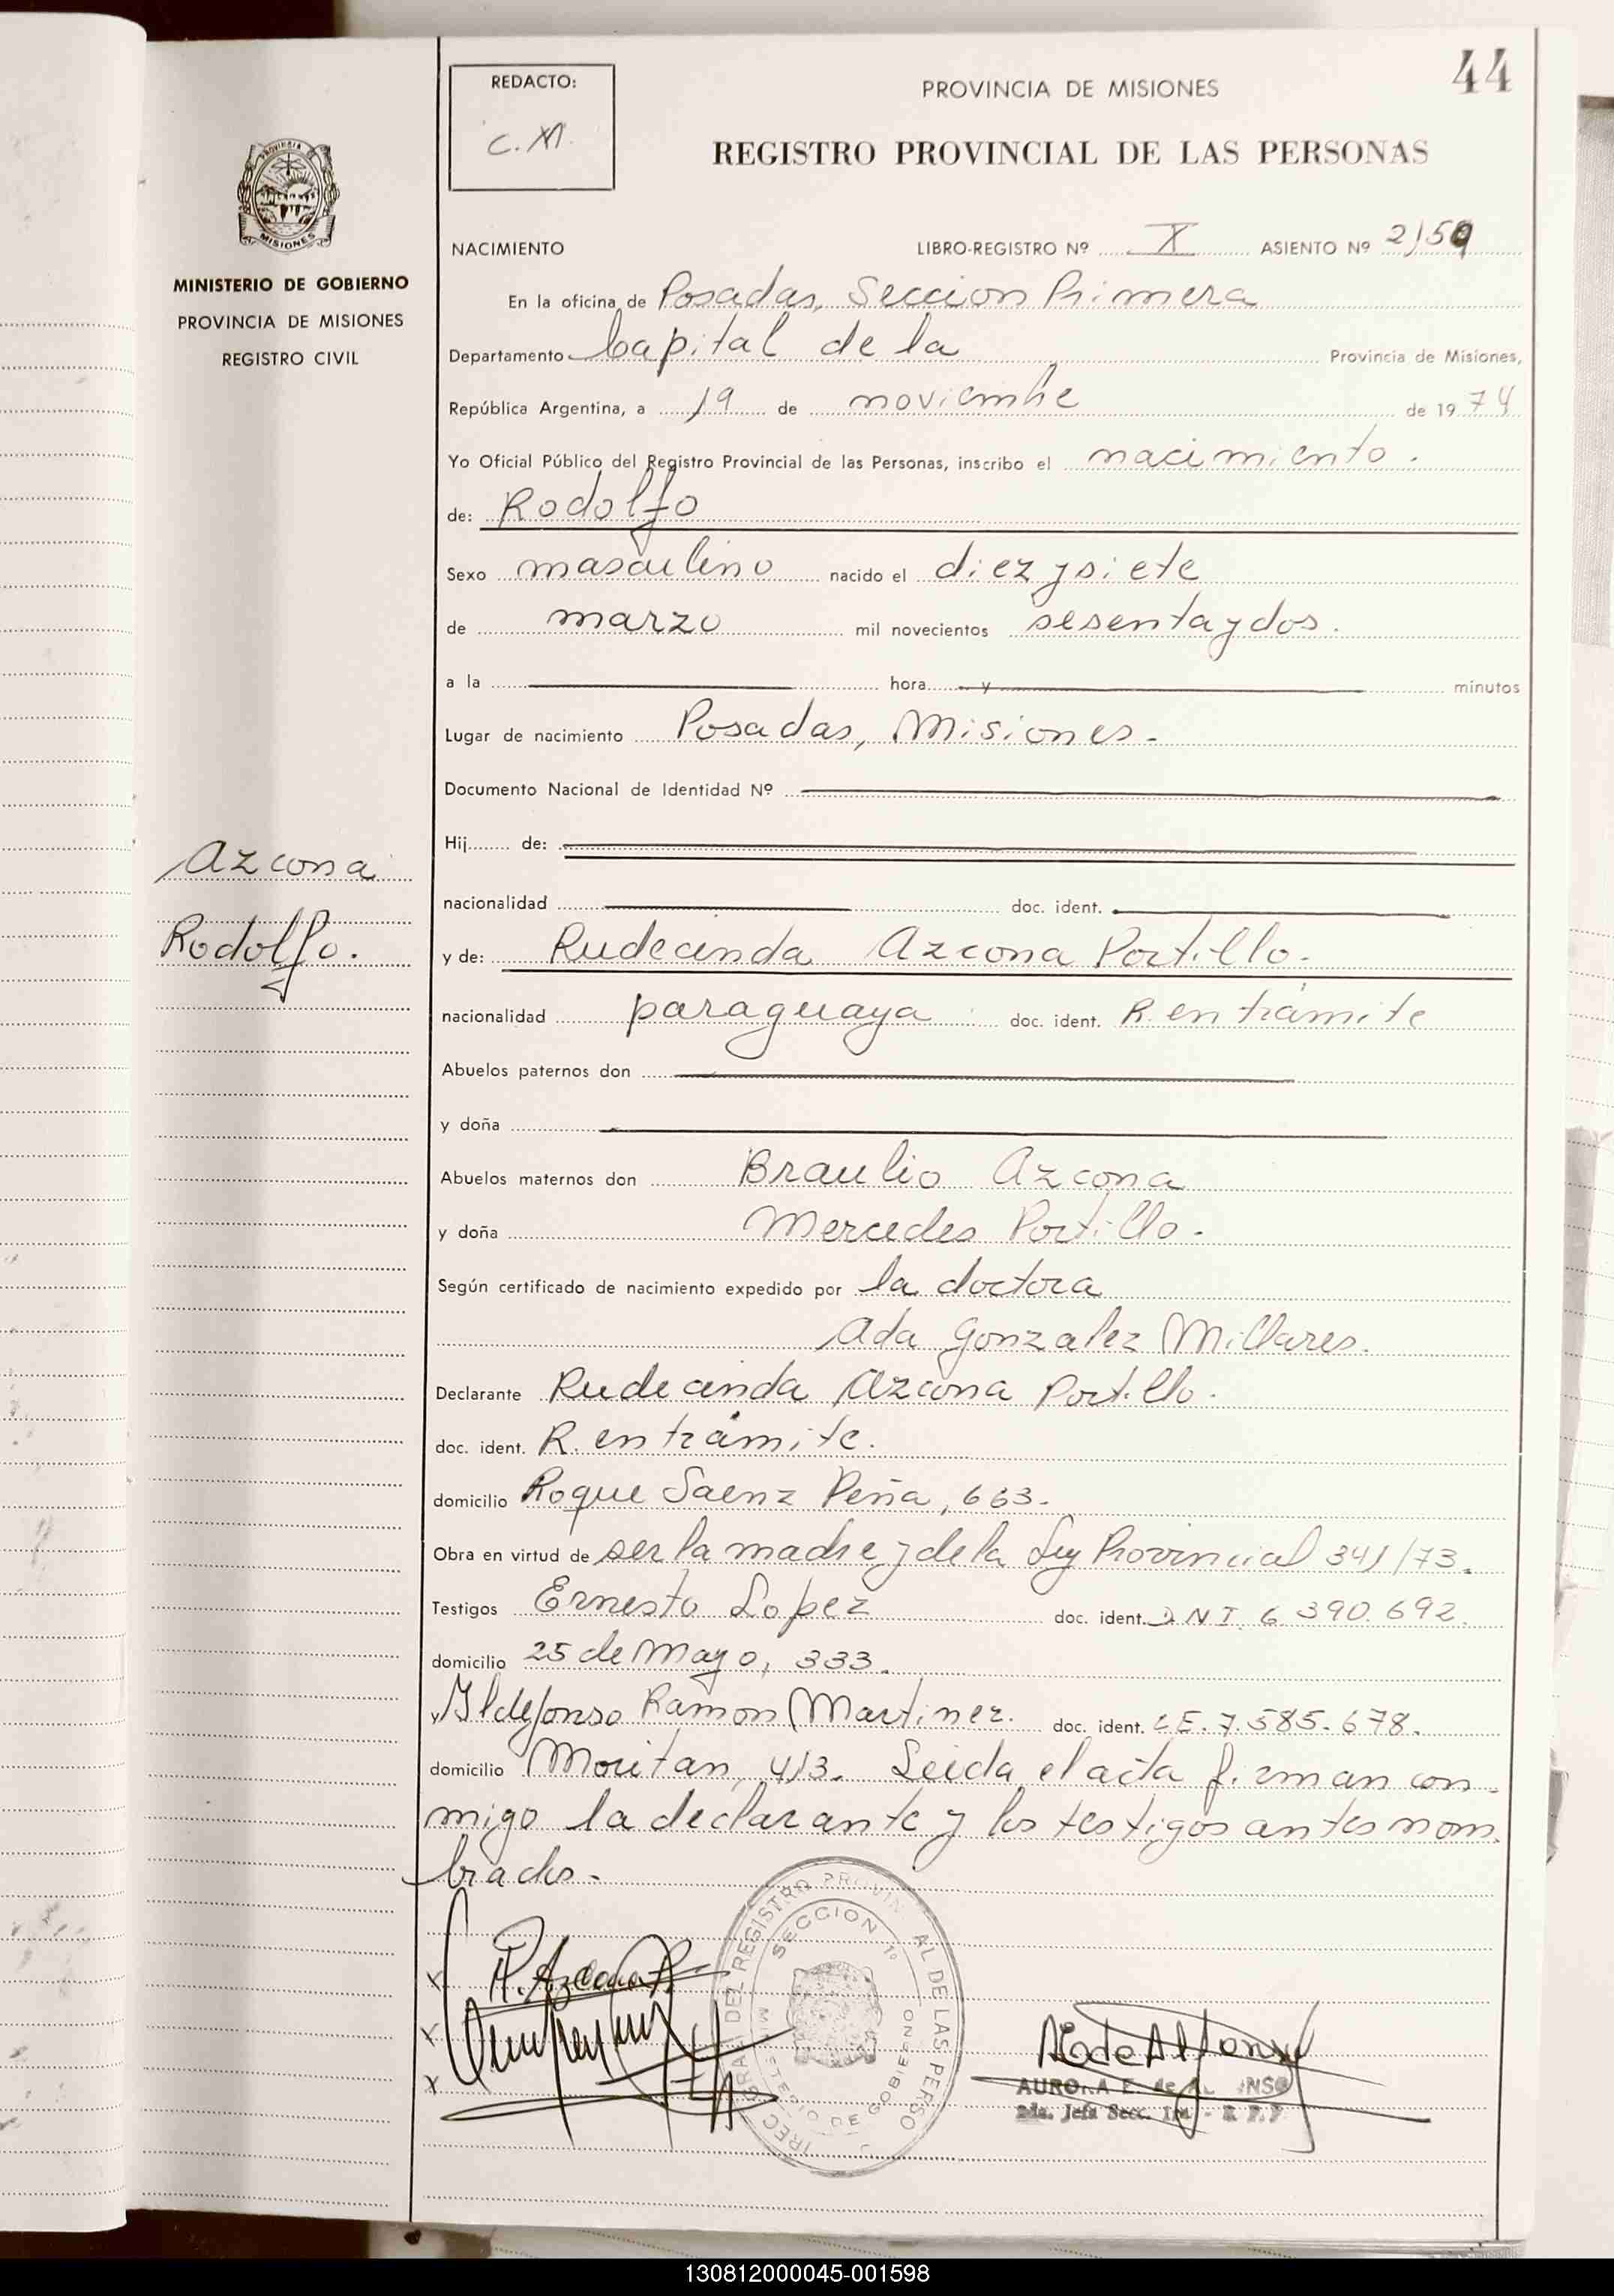 44
REDACTO:
C.M.
PROVINCIA DE MISIONES
REGISTRO PROVINCIAL DE LAS PERSONAS
MISIONES
MINISTERIO DE GOBIERNO
PROVINCIA DE MISIONES
REGISTRO CIVIL
NACIMIENTO LIBRO-REGISTRO Nº X ASIENTO Nº 2159
En la oficina de Posadas, Seccion Primera
Departamento Capital de la Provincia de Misiones,
República Argentina, a 19 de noviembre de 1974
Yo Oficial Público del Registro Provincial de las Personas, inscribo el nacimiento.
de: Rodolfo
Sexo masculino nacido el diez y siete
de marzo mil novecientos sesenta y dos.
a la hora y minutos
Lugar de nacimiento Posadas, Misiones.
Documento Nacional de Identidad Nº
Hij de:
Azcona
Rodolfo.
nacionalidad doc. ident.
y de: Rudecinda Azcona Portillo.
nacionalidad paraguaya doc. ident. R. en trámite
Abuelos paternos don
y doña
Abuelos maternos don Braulio Azcona
y doña Mercedes Portillo.
Según certificado de nacimiento expedido por la doctora
Ada Gonzalez Millares.
Declarante Rudecinda Azcona Portillo.
doc. ident. R. en trámite.
domicilio Roque Saenz Peña, 663.
Obra en virtud de ser la madre y de la Ley Provincial 341/73.
Testigos Ernesto Lopez doc. ident. DNI 6.390.692.
domicilio 25 de Mayo, 333.
y Ildefonso Ramon Martinez. doc. ident. LE. 7.585.678.
domicilio Moritan, 413. Leida el acta firman con-
migo la declarante y los testigos antes nom-
brados.
R. Azcona P.
SECCION 1º
MINISTERIO DE GOBIERNO
AURORA E. de
2da. Jefa Secc. 1ra. - R. P. P
130812000045-001598